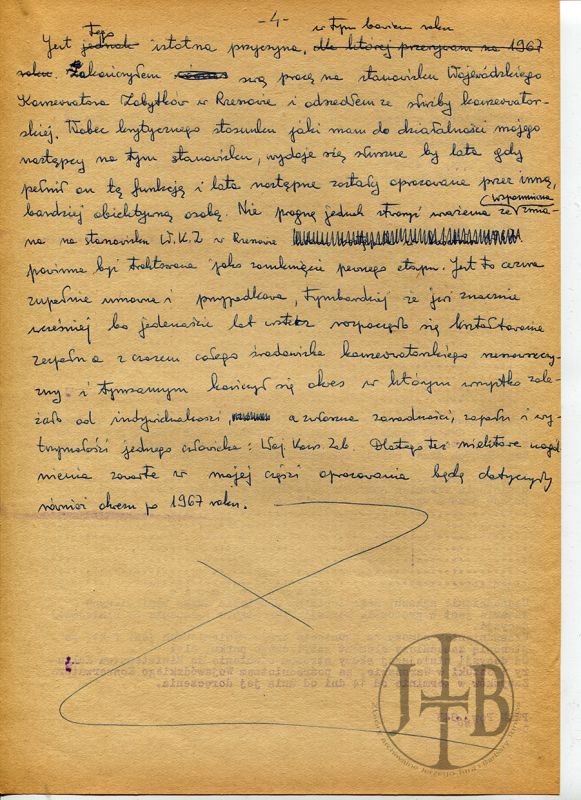 -4-
Jest tego jednak istotna przyczyna. dla której przerywam na 1967
w tym bowiem roku
roku. Zakończyłem swą pracę na stanowisku Wojewódzkiego
Konserwatora Zabytków w Rzeszowie i odszedłem ze służby konserwator-
skiej. Wobec krytycznego stosunku jaki mam do działalności mojego
następcy na tym stanowisku, wydaje się słuszne by lata gdy
pełnił on tę funkcję i lata następne zostały opracowane przez inną,
bardziej obiektywną osobę. Nie pragnę jednak stwarzać wrażenia że wspomniana zmia-
na na stanowisku W.K.Z w Rzeszowie
powinna być traktowana jako zamknięcie pewnego etapu. Jest to cezura
zupełnie umowna i przypadkowa, tymbardziej że już znacznie
wcześniej bo jedenaście lat wstecz rozpoczęło się kształtowanie
zespołu a z czasem całego środowiska konserwatorskiego rzeszowszczy-
zny i tymsamym kończył się okres w którym wszystko zale-
żało od indywidualności, a zwłaszcza zaradności, zapału i wy-
trzymałości jednego człowieka: Woj. Kons. Zab. Dlatego też niektóre zagad
nienia zawarte w mojej części opracowania będą dotyczyły
również okresu po 1967 roku.
JTB